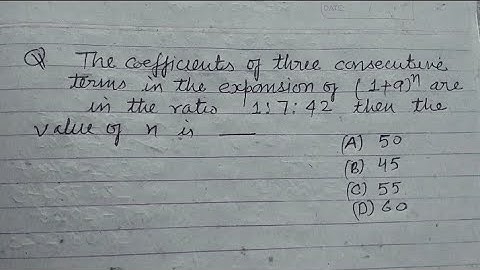 Q The coefficients of three consecutive
terms in the expansion of (1+a)ⁿ are
in the ratio 1:7:42 then the
value of n is ___
(A) 50
(B) 45
(C) 55
(D) 60